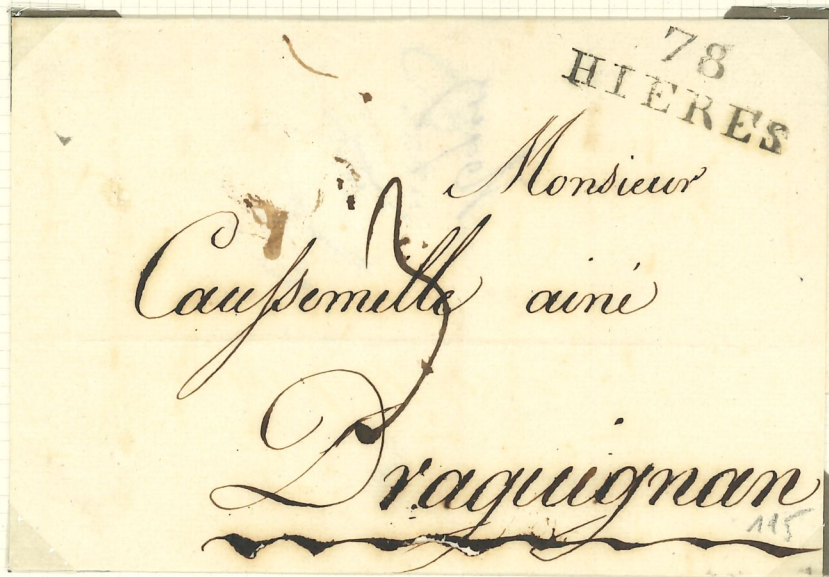 78
HIERES
Monsieur
Caussemille ainé
3
Draguignan
115